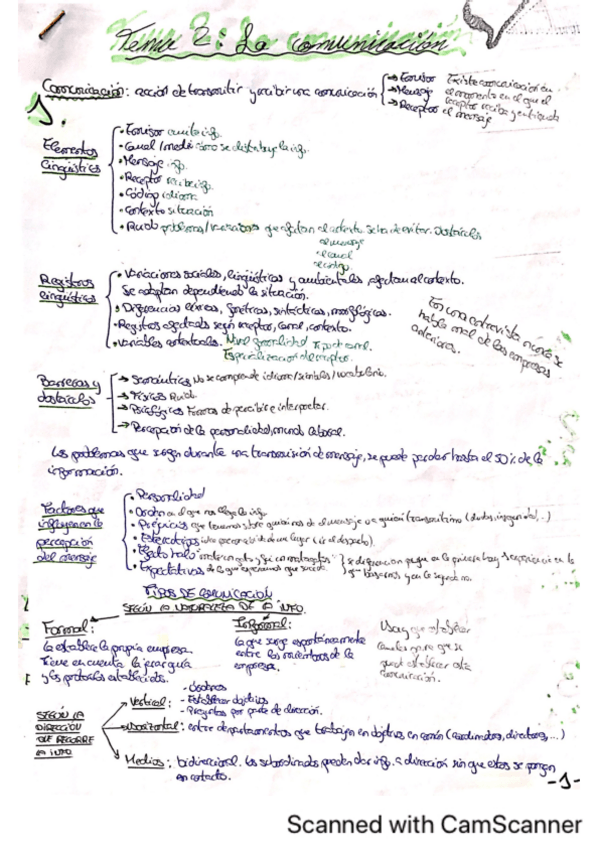 Tema 2: La comunicación
Comunicación: acción de transmitir y recibir una comunicación
→ Emisor
→ Mensaje
→ Receptor
Existe comunicación en
el momento en el que el
receptor recibe y entiende
el mensaje
1.
Elementos
lingüísticos
• Emisor emite info.
• Canal/medio cómo se distribuye la info.
• Mensaje info.
• Receptor recibe info.
• Código idioma
• Contexto situación
• Ruido problemas/
el mensaje
el canal
el código
Registros
lingüísticos
• Variaciones sociales, lingüísticas y ambientales, afectan al contexto.
Se adaptan dependiendo la situación.
• Diferencias léxicas, fonéticas, sintácticas, morfológicas.
• Registros afectados según receptor, canal, contexto.
• Variables contextuales. Nivel formalidad Tipo de canal.
Especialización del receptor.
En una entrevista nunca se
habla mal de las empresas
anteriores.
Barreras y
obstáculos
→ Semánticas No se comprende idioma/señales/vocabulario.
→ Físicas Ruido.
→ Psicológicas Formas de percibir e interpretar.
→ Percepción de la personalidad, mundo laboral.
Los problemas que surgen durante una transmisión de mensaje, se puede perder hasta el 50% de la
información.
Factores que
influyen en la
percepción
del mensaje
• Personalidad
• Orden en el que nos llega la info.
• Prejuicios que tenemos sobre quien nos da el mensaje o a quien transmitimo (dudas, inseguridad,..)
• Estereotipos
• Efecto halo
• Expectativas de lo que esperamos que suceda
TIPOS DE COMUNICACIÓN
SEGÚN LA NATURALEZA DE LA INFO.
Formal:
La establece la propia empresa.
Tiene en cuenta la jerarquía
y los protocolos establecidos.
Informal:
La que surge espontáneamente
entre los miembros de la
empresa.
Hay que establecer
canales para que se
pueda establecer esta
comunicación.
SEGÚN LA
DIRECCIÓN
QUE RECORRE
LA INFO
Vertical:
- Órdenes
- Establecer objetivos
- Preguntas por parte de dirección.
Horizontal: entre departamentos que trabajan en objetivos en común (coordinadores, directores,...)
Medios: bidireccional. Los subordinados pueden dar info. a dirección sin que estos se pongan
en contacto.
-1-
Scanned with CamScanner